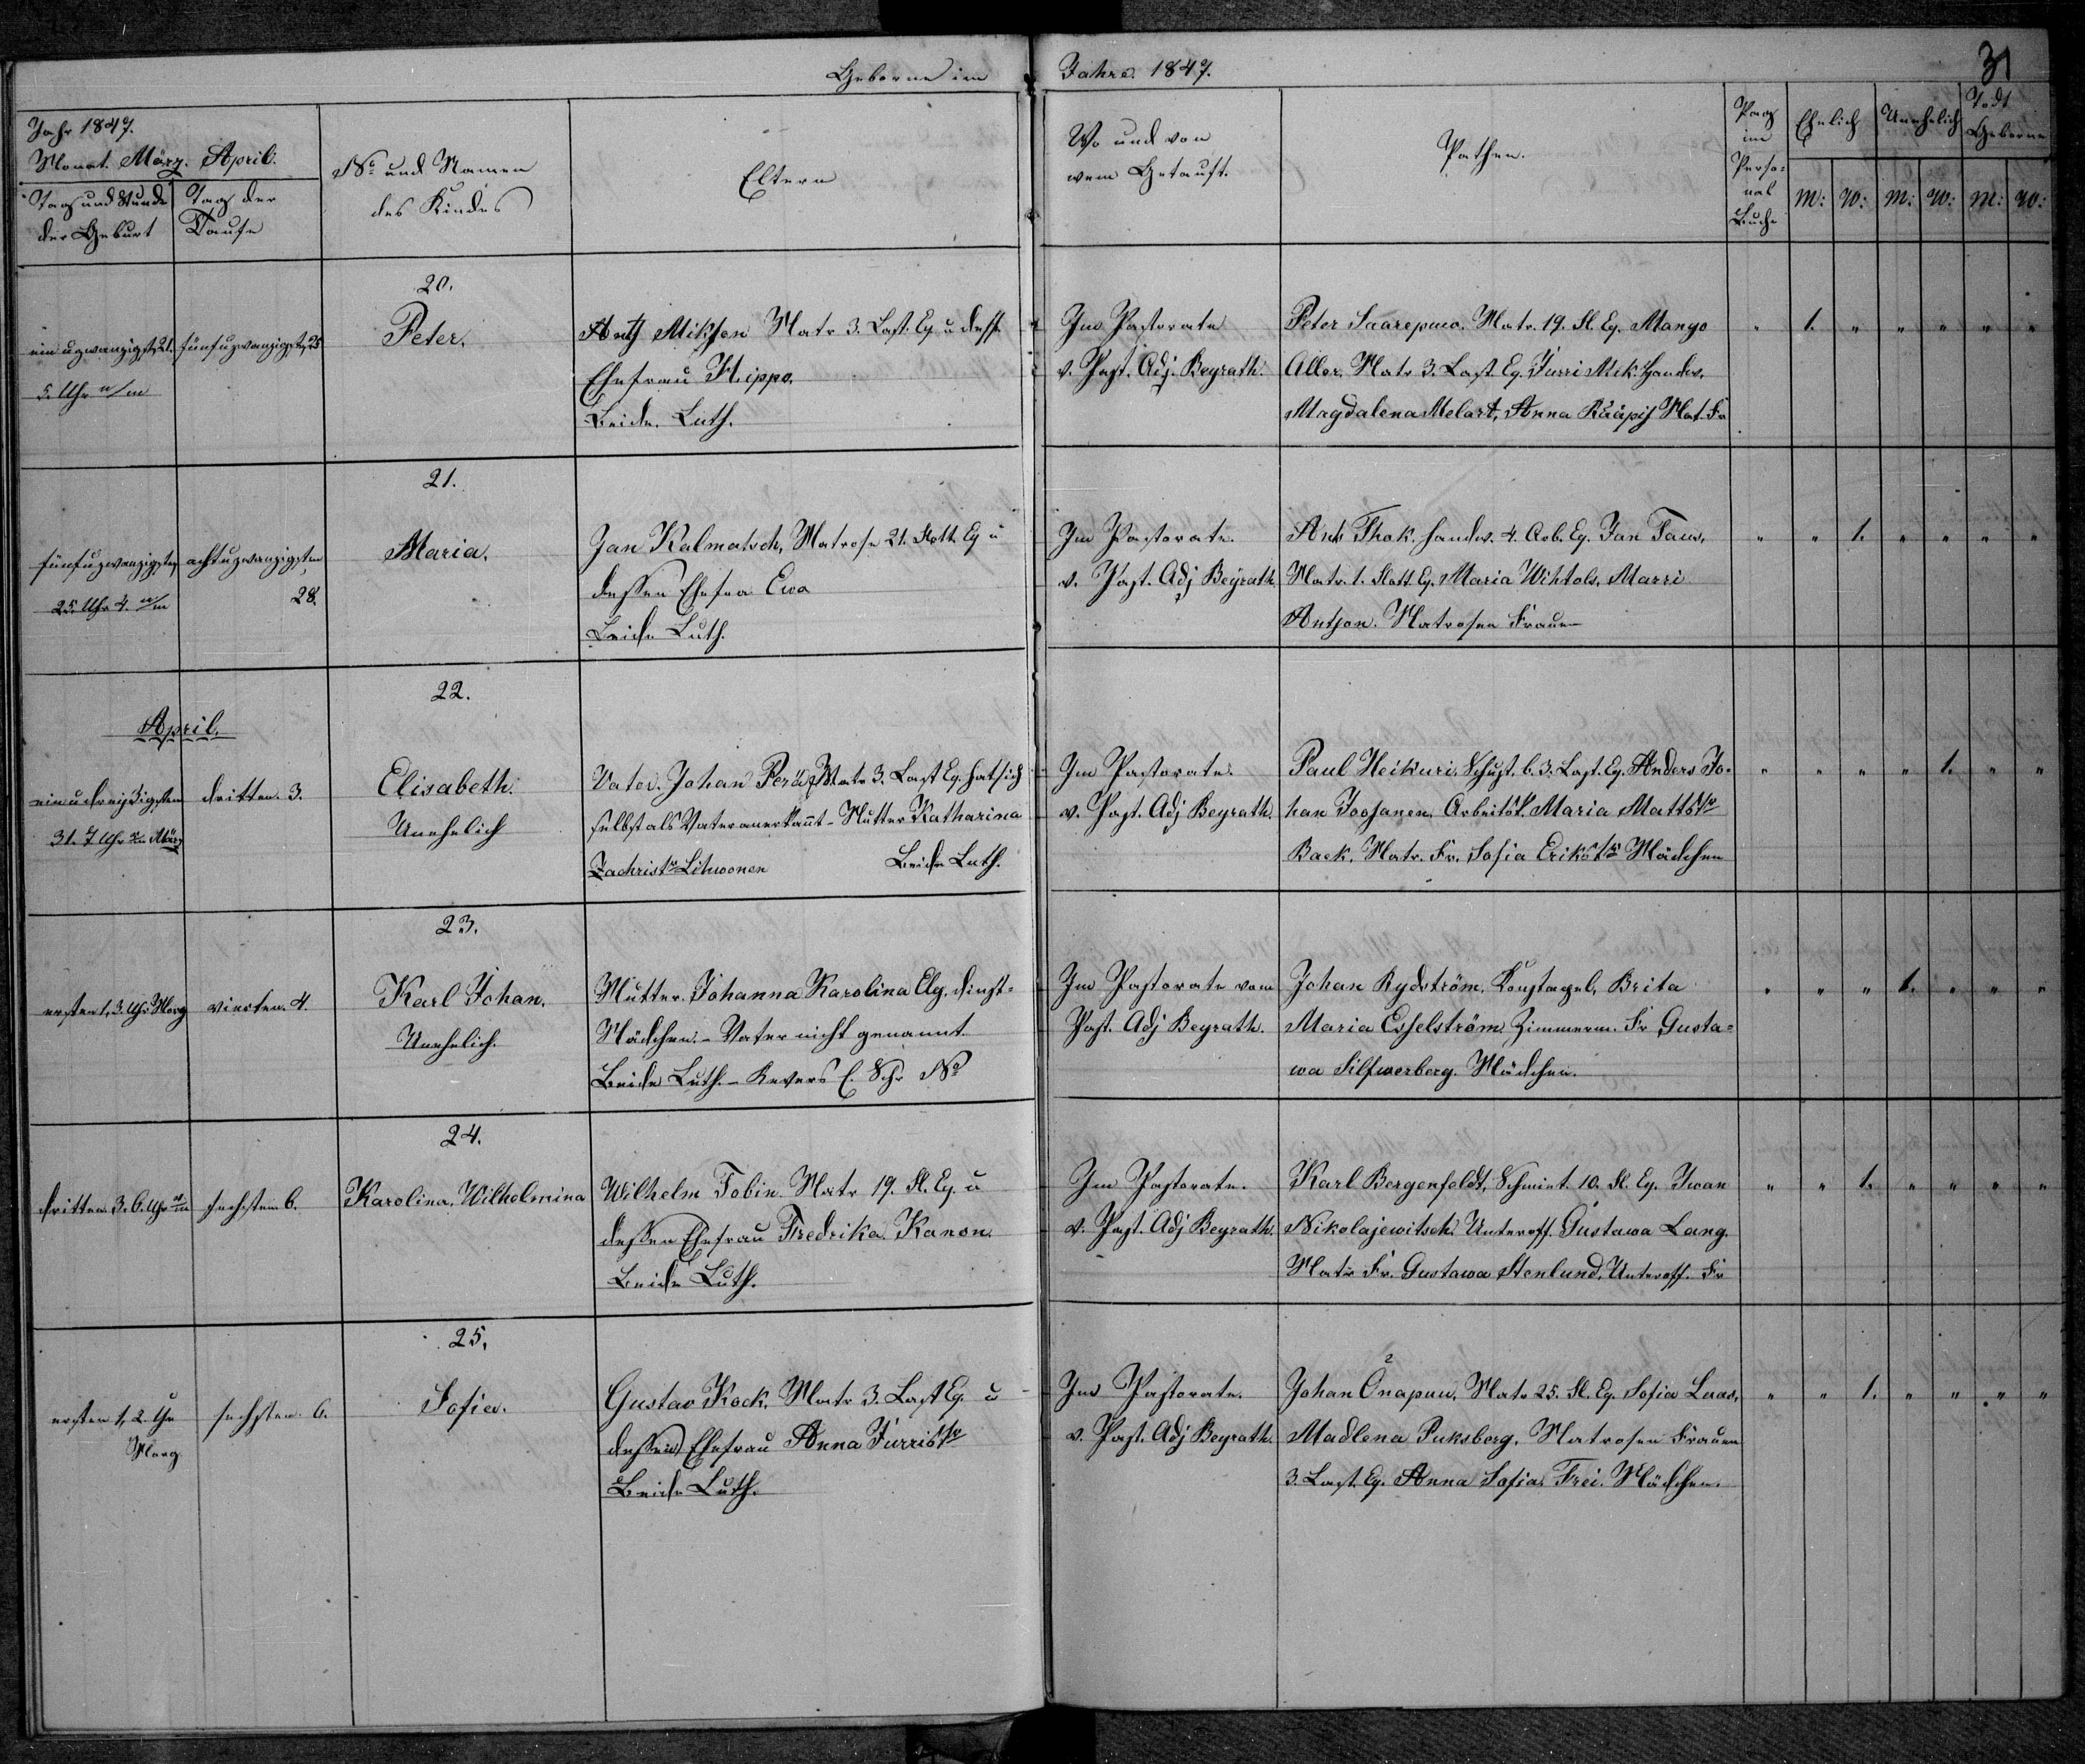 Geborne im Jahre 1847.
31
Jahr 1847.
Monat. März. April.
Tag und Stunde der Geburt
Tag der Taufe
No und Namen des Kindes
Eltern
Wo und von wem Getauft.
Pathen.
Pag im Perso=nal Buche
Ehelich
Unehelich
Todt Geborne
m: w: m: w: m: w:
20.
ein u zwanzigst. 21.
5. Uhr n/m
fünf u zwanzigst. 25
Peter.
Antz Mikson Matr 3. Last. Eq. u dess.
Ehefrau Hippo.
Beide. Luth.
Im Pastorate
v. Past. Adj. Beyrath.
Peter Saarepuu. Matr. 19. Fl. Eq. Mango
Aller. Matr 3. Last. Eq. Jurri Mik Handw.
Magdalena Melart, Anna Rääpis Mat. Fr
" 1. " " " " "
21.
fünf u zwanzigsten
25. Uhr 4. n/m
acht u zwanzigsten
28.
Maria.
Jan Kalmatsch, Matrose 21. Flott. Eq u
dessen Ehefra Ewa
Beide Luth.
Im Pastorate.
v. Past. Adj Beyrath
Ants Thok. handw. 4. Arb. Eq. Jan Taur,
Matr. 1. Flott. Eq. Maria Wihtols, Marri
Antson. Matrosen Frauen
" " 1. " " " "
22.
April.
ein u dreißigsten
31. 7 Uhr März
dritten. 3.
Elisabeth.
Unehelich
Vater. Johan Matr 3. Last Eq. hat sich
selbst als Vater anerkannt - Mutter Katharina
Zachristr Lihwonen Beide Luth.
Im Pastorate.
v. Past. Adj Beyrath.
Paul Heikuri. Schust. b. 3. Last. Eq. Anders Jo-
han Joosanen. Arbeitsk. Maria Mattstr
Back. Matr. Fr. Sofia Erikstr Mädchen
" " " " 1. " "
23.
ersten 1, 3. Uhr Morg
vierten. 4.
Karl Johan.
Unehelich.
Mutter. Johanna Karolina Elg. dinst=
Mädchen. - Vater nicht genannt.
Beide Luth. - Revers No
Im Pastorate vom
Past. Adj Beyrath.
Johan Rydström. Konstapel, Brita
Maria Esselström Zimmerm. Fr Gusta=
wa Silfwerberg. Mädchen.
" " " 1. " " "
24.
dritten 3. 6. Uhr
sechsten 6.
Karolina. Wilhelmina
Wilhelm Tobin. Matr 19. Fl. Eq. u
dessen Ehefrau Fredrika Kanon.
Beide Luth.
Im Pastorate.
v. Past. Adj Beyrath.
Karl Bergenfeldt, Schmint. 10. Fl. Eq. Iwan
Nikolajewitsch. Unteroff. Gustawa Lang.
Matr Fr. Gustawa Stenlund. Unteroff. Fr
" " 1. " " " "
25.
ersten 1, 2. Uhr
Morg
sechsten. 6.
Sofia.
Gustav Kock. Matr 3. Last Eq. u
dessen Ehefrau Anna Jurristr
Beide Luth.
Im Pastorate.
v. Past. Adj Beyrath.
Johan Onapuu. Matr 25. Fl. Eq. Sofia Laas,
Madlena Puksberg. Matrosen Frauen
3. Last. Eq. Anna Sofia Frei. Mädchen.
" " 1. " " " "